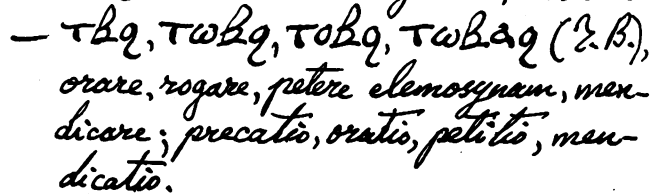 — ⲧⲃϩ, ⲧⲱⲃϩ, ⲧⲟⲃϩ, ⲧⲱⲃⲁϩ (T. B.),
orare, rogare, petere elemosynam, men-
dicare; precatio, oratio, petitio, men-
dicatio.